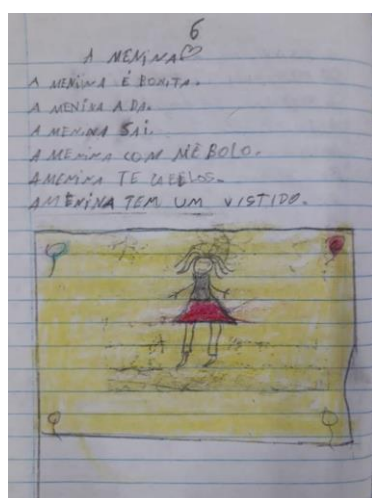 6
A MENINA
A MENINA É BONITA.
A MENINA ADA.
A MENINA SAI.
A MENINA COM MÊ BOLO.
A MENINA TE CABELOS.
A MENINA TEM UM VISTIDO.